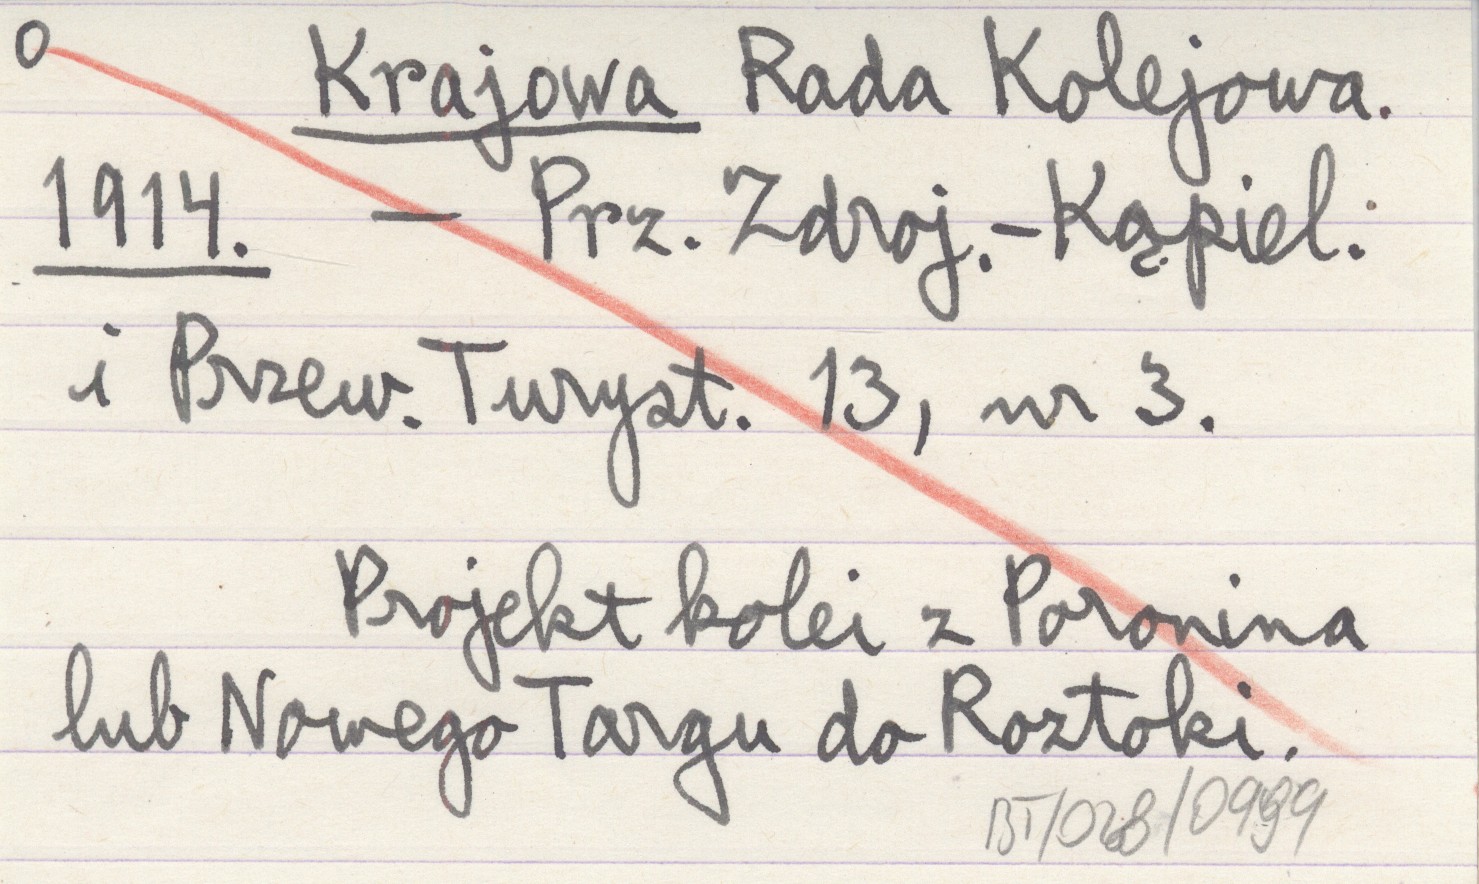 O Krajowa Rada Kolejowa.
1914. — Prz. Zdroj.-Kąpiel.
i Przew. Turyst. 13, nr 3.
Projekt kolei z Poronina
lub Nowego Targu do Roztoki.
BT/028/0999